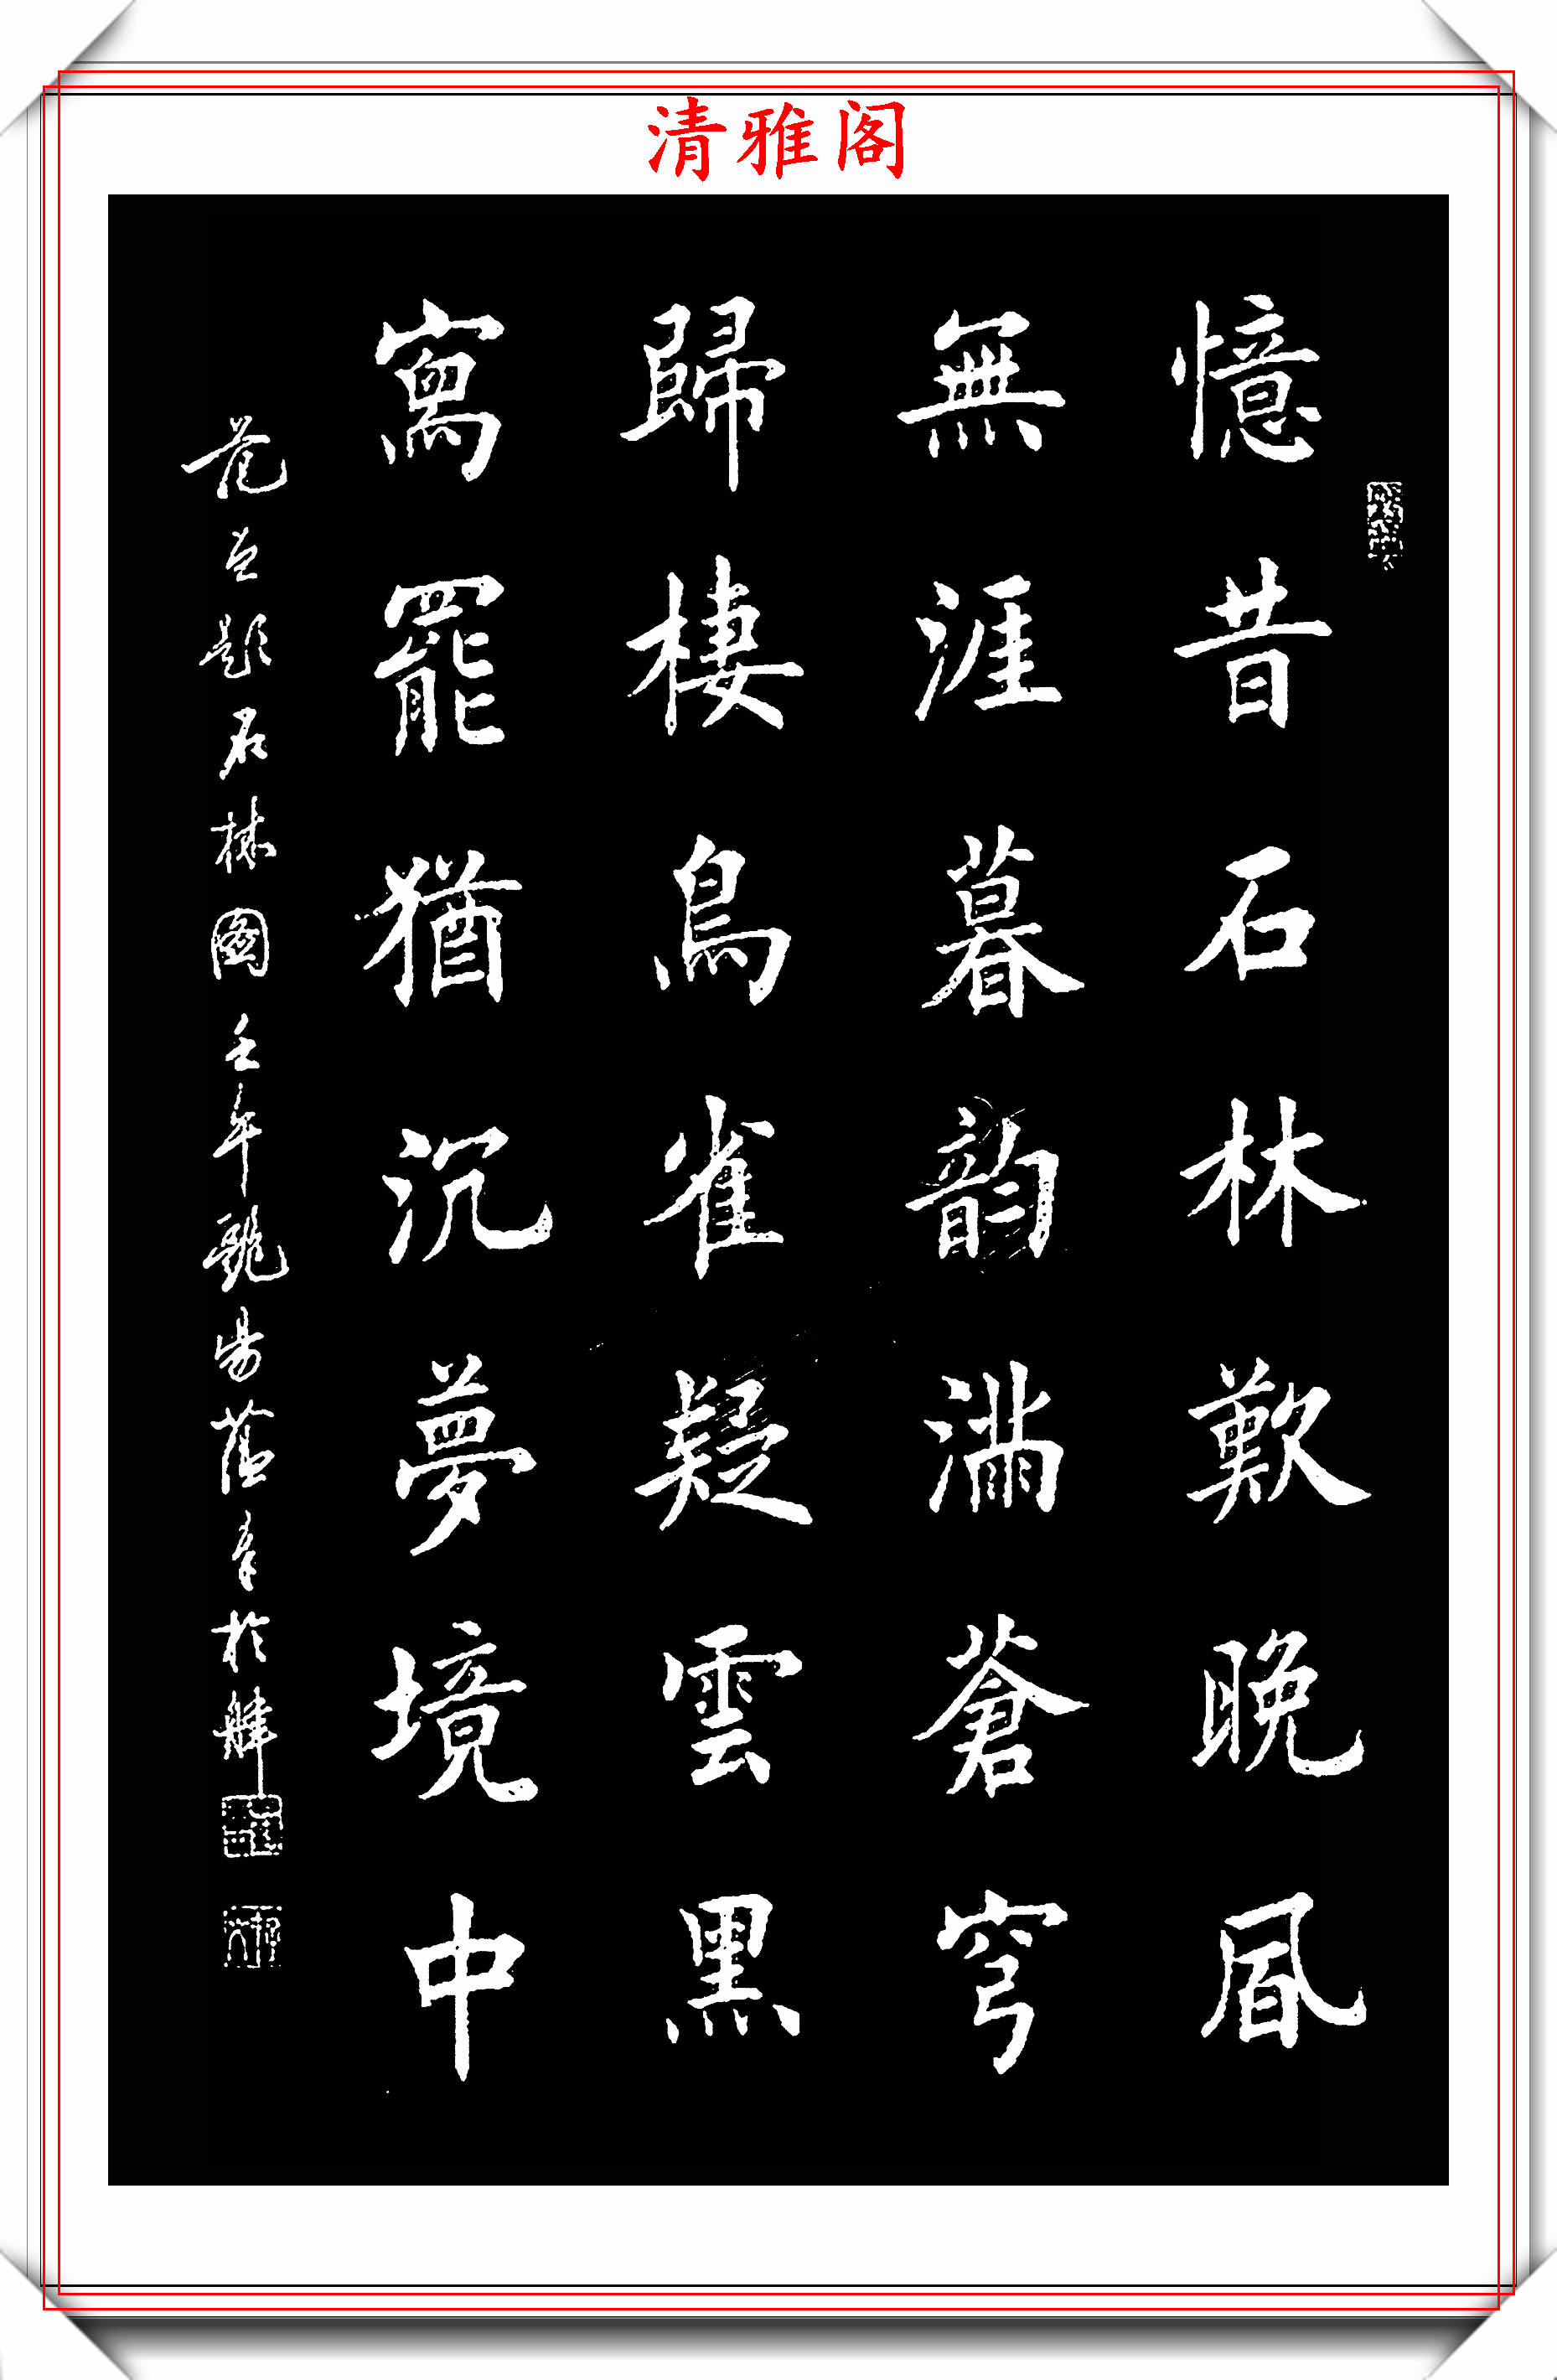 清雅阁
憶昔石林歎晚風
無涯暮韵滿蒼穹
歸棲鳥雀疑雲黑
寫罷猶沉夢境中
題石林圖壬午
於